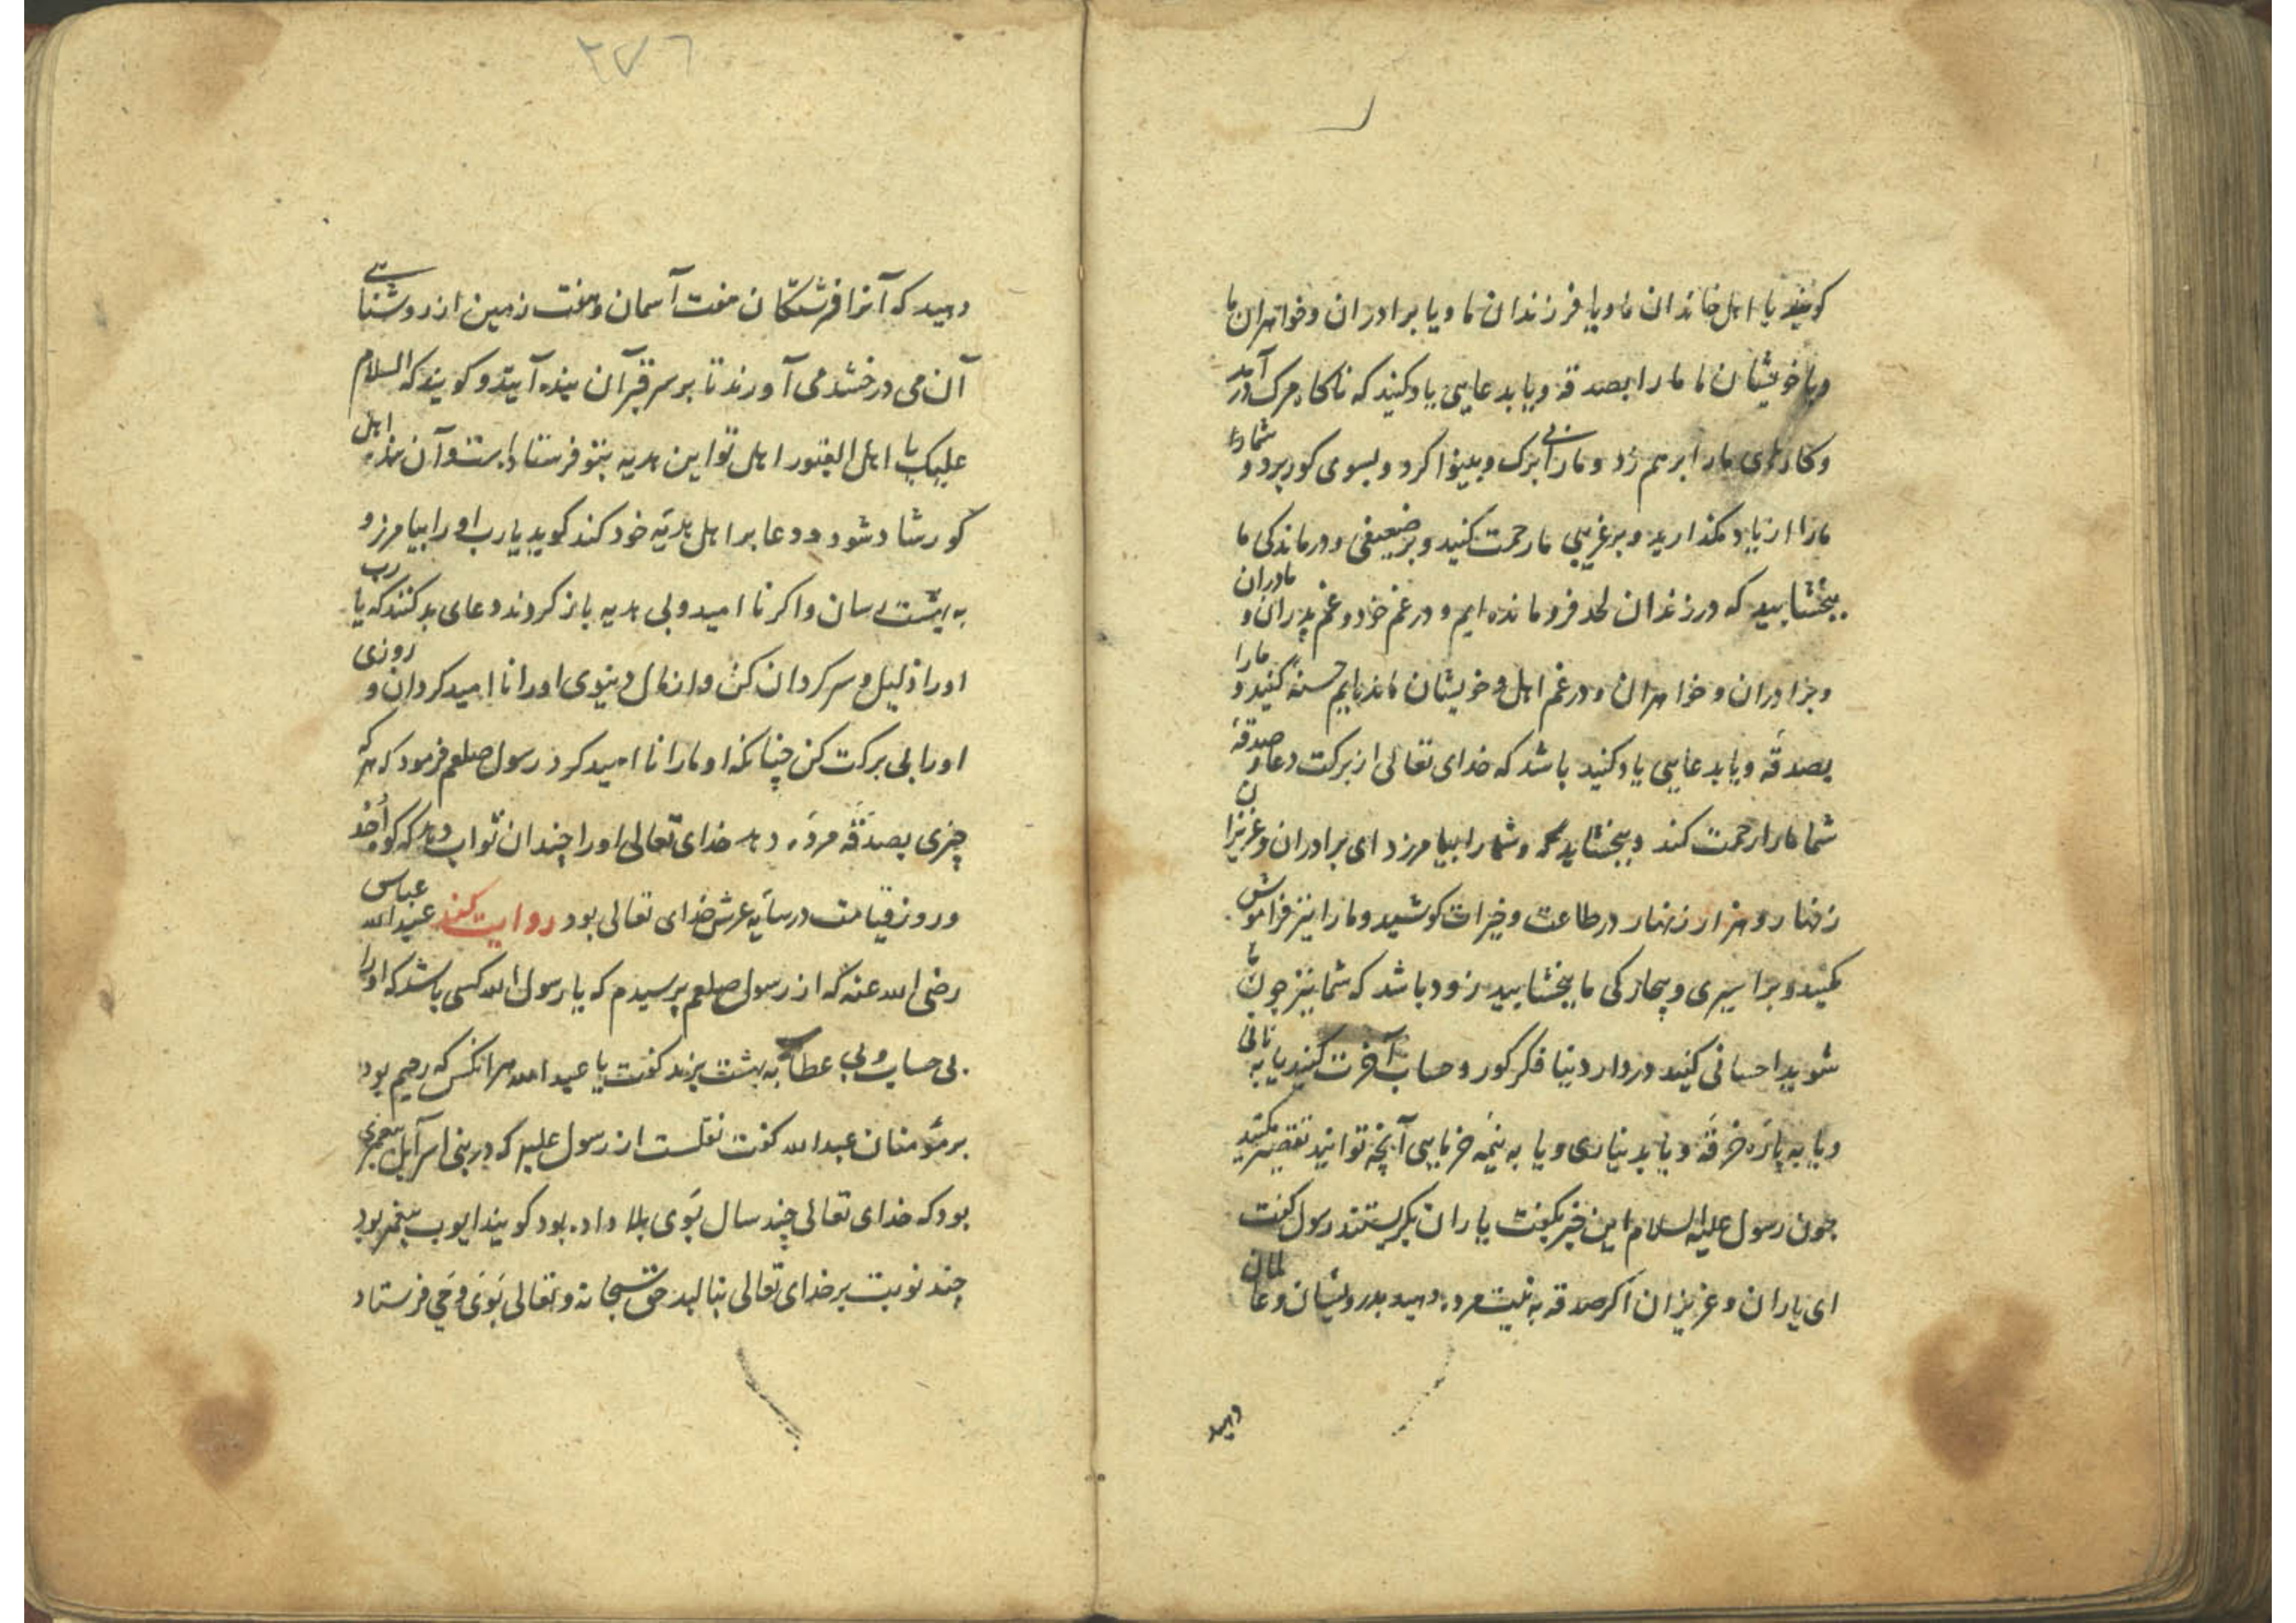 کویند یا اهل خاندان ما و یا فرزندان ما و یا برادران و خواهران ما
و یا خویشان ما ما را بصدقه و یا بدعایی یاد کنید که ناکاه مرک در آمد
و کارهای ما را برهم زد و ما را بی برک و بینوا کرد و بسوی کور برد و شما را
ما را از یاد مکذارید و بر غریبی ما رحمت کنید و بر ضعیفی و درماندکی ما
ببخشایید که در زندان لحد فرو مانده ایم و در غم خود و غم پدران و مادران
و برادران و خواهران و در غم اهل و خویشان مانده ایم حسنه کنید و ما را
بصدقه و یا بدعایی یاد کنید باشد که خدای تعالی از برکت دعا و صدقهٔ
شما ما را رحمت کند و ببخشاید و شما را بیامرزد ای برادران و عزیزان
زنهار و هزار زنهار در طاعت و خیرات کوشید و ما را نیز فراموش
مکنید و بر اسیری و بیچارکی ما ببخشایید زود باشد که شما نیز چون ما
شوید احسانی کنید در دار دنیا فکر کور و حساب آخرت کنید یا به نانی
و یا به پاره خرقه و یا بدیناری و یا به نیمه خرمایی آنچه توانید تقصیر مکنید
چون رسول علیه السلام این خبر بکفت یاران بکریستند رسول کفت
ای یاران و عزیزان اکر صدقه به نیت مرده دهید بدرویشان و عالمان
دهید
۲۷۶
دهید که آنرا فرشتکان هفت آسمان و هفت زمین از روشنایی
آن می درخشد می آورند تا بر سر قبر آن بنده آیند و کویند که السلام
علیک یا اهل القبور اهل تو این هدیه بتو فرستاده است و آن بنده اهل
کور شاد شود و دعا بر اهل هدیه خود کند کوید یا رب او را بیامرز و
به بهشت رسان و اکر نا امید و بی هدیه باز کردند دعای بد کنند که یا رب
او را ذلیل و سر کردان کن و از مال دنیوی او را نا امید کردان و روزی
او را بی برکت کن چنانکه او ما را نا امید کرد رسول صلعم فرمود که هر که
چیزی بصدقه مرده دهد خدای تعالی او را چندان ثواب دهد که کوه احد
و روز قیامت در سایه عرش خدای تعالی بود روایت کند عبد الله عباس
رضی الله عنه که از رسول صلعم پرسیدم که یا رسول الله کسی باشد که او را
بی حساب و بی عطاب به بهشت برند کفت یا عبد الله هر انکس که رحیم بود
بر مؤمنان عبد الله کفت نقلست از رسول علیه که در بنی اسرآیل پیغمبری
بود که خدای تعالی چند سال بوی بلا داده بود کویند ایوب پیغمبر بود
چند نوبت بر خدای تعالی بنالید حق سبحانه و تعالی بوی وحی فرستاد